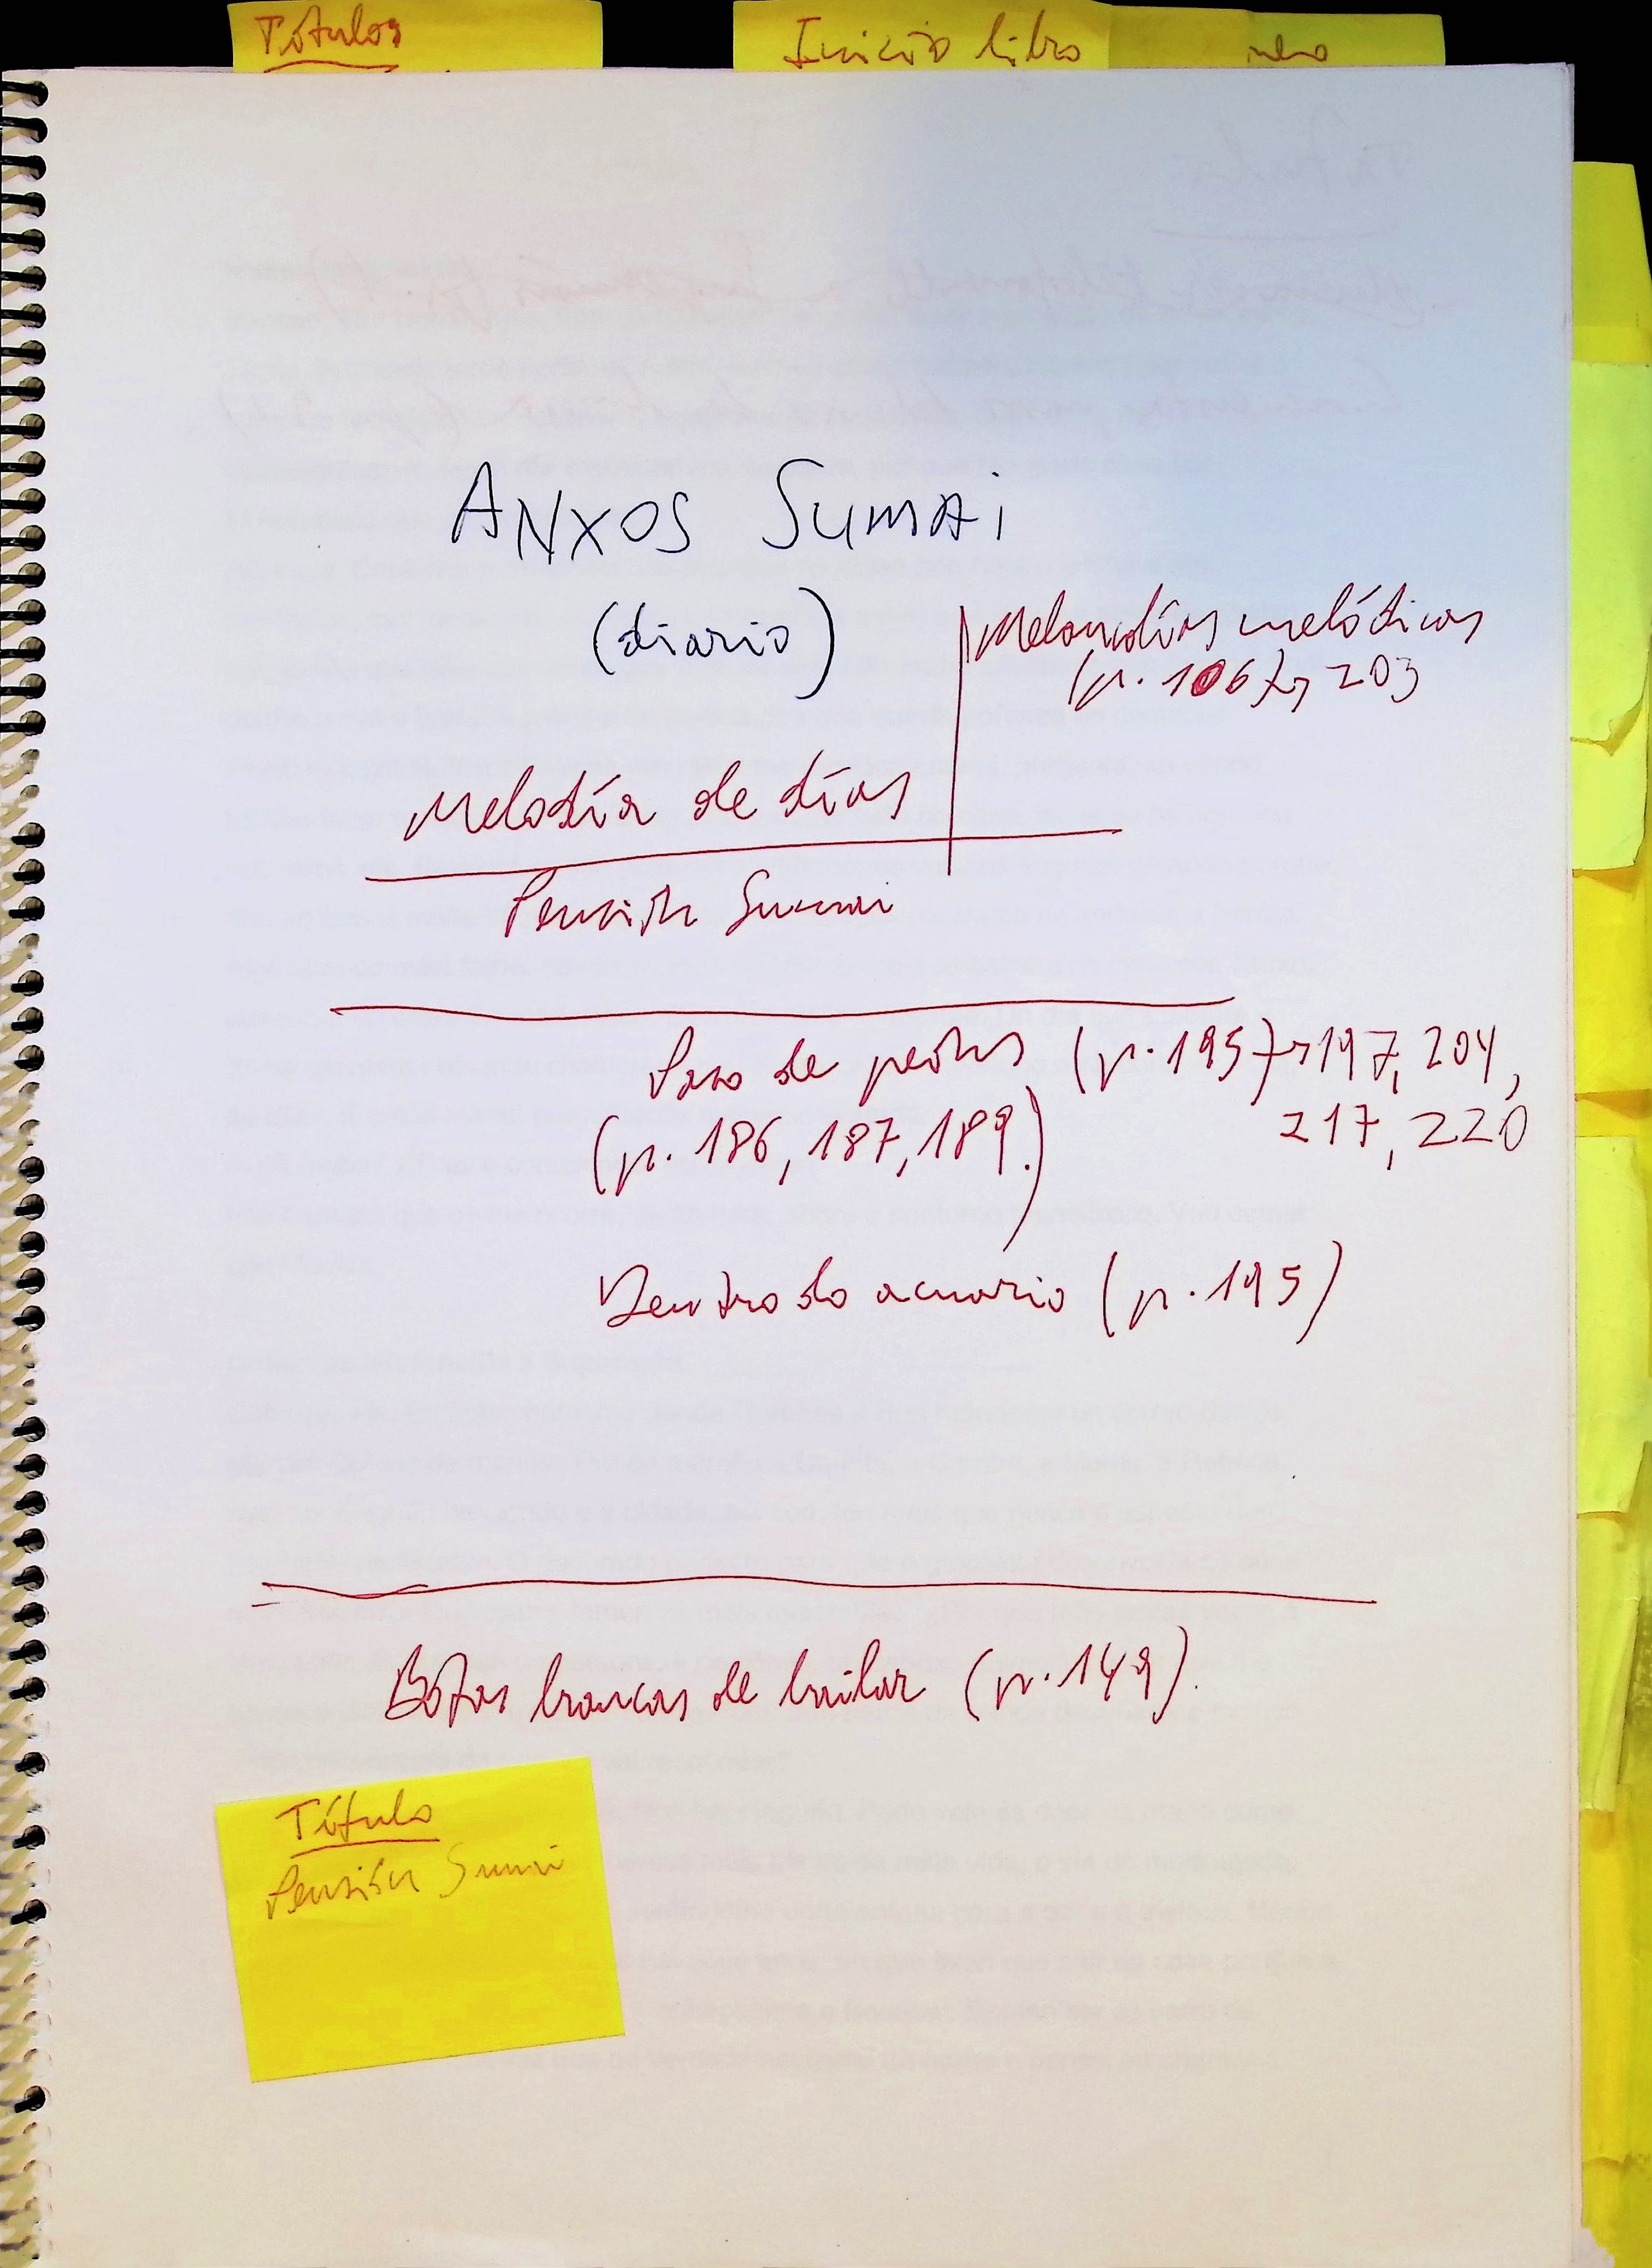 Títulos
Inicio libro
ANXOS SUMAI
(diario)
Melancolías melódicas
(p. 106) 203
Melodía de días
Pensión Sumai
Paso de peóns (p. 195) 197, 204,
217, 220
(p. 186, 187, 189.)
Dentro do acuario (p. 195)
Botas brancas de bailar (p. 149).
Título
Pensión Sumai